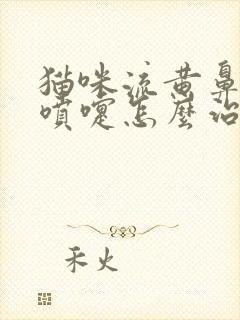 猫咪流黄鼻
喷嚏怎麼治
禾火